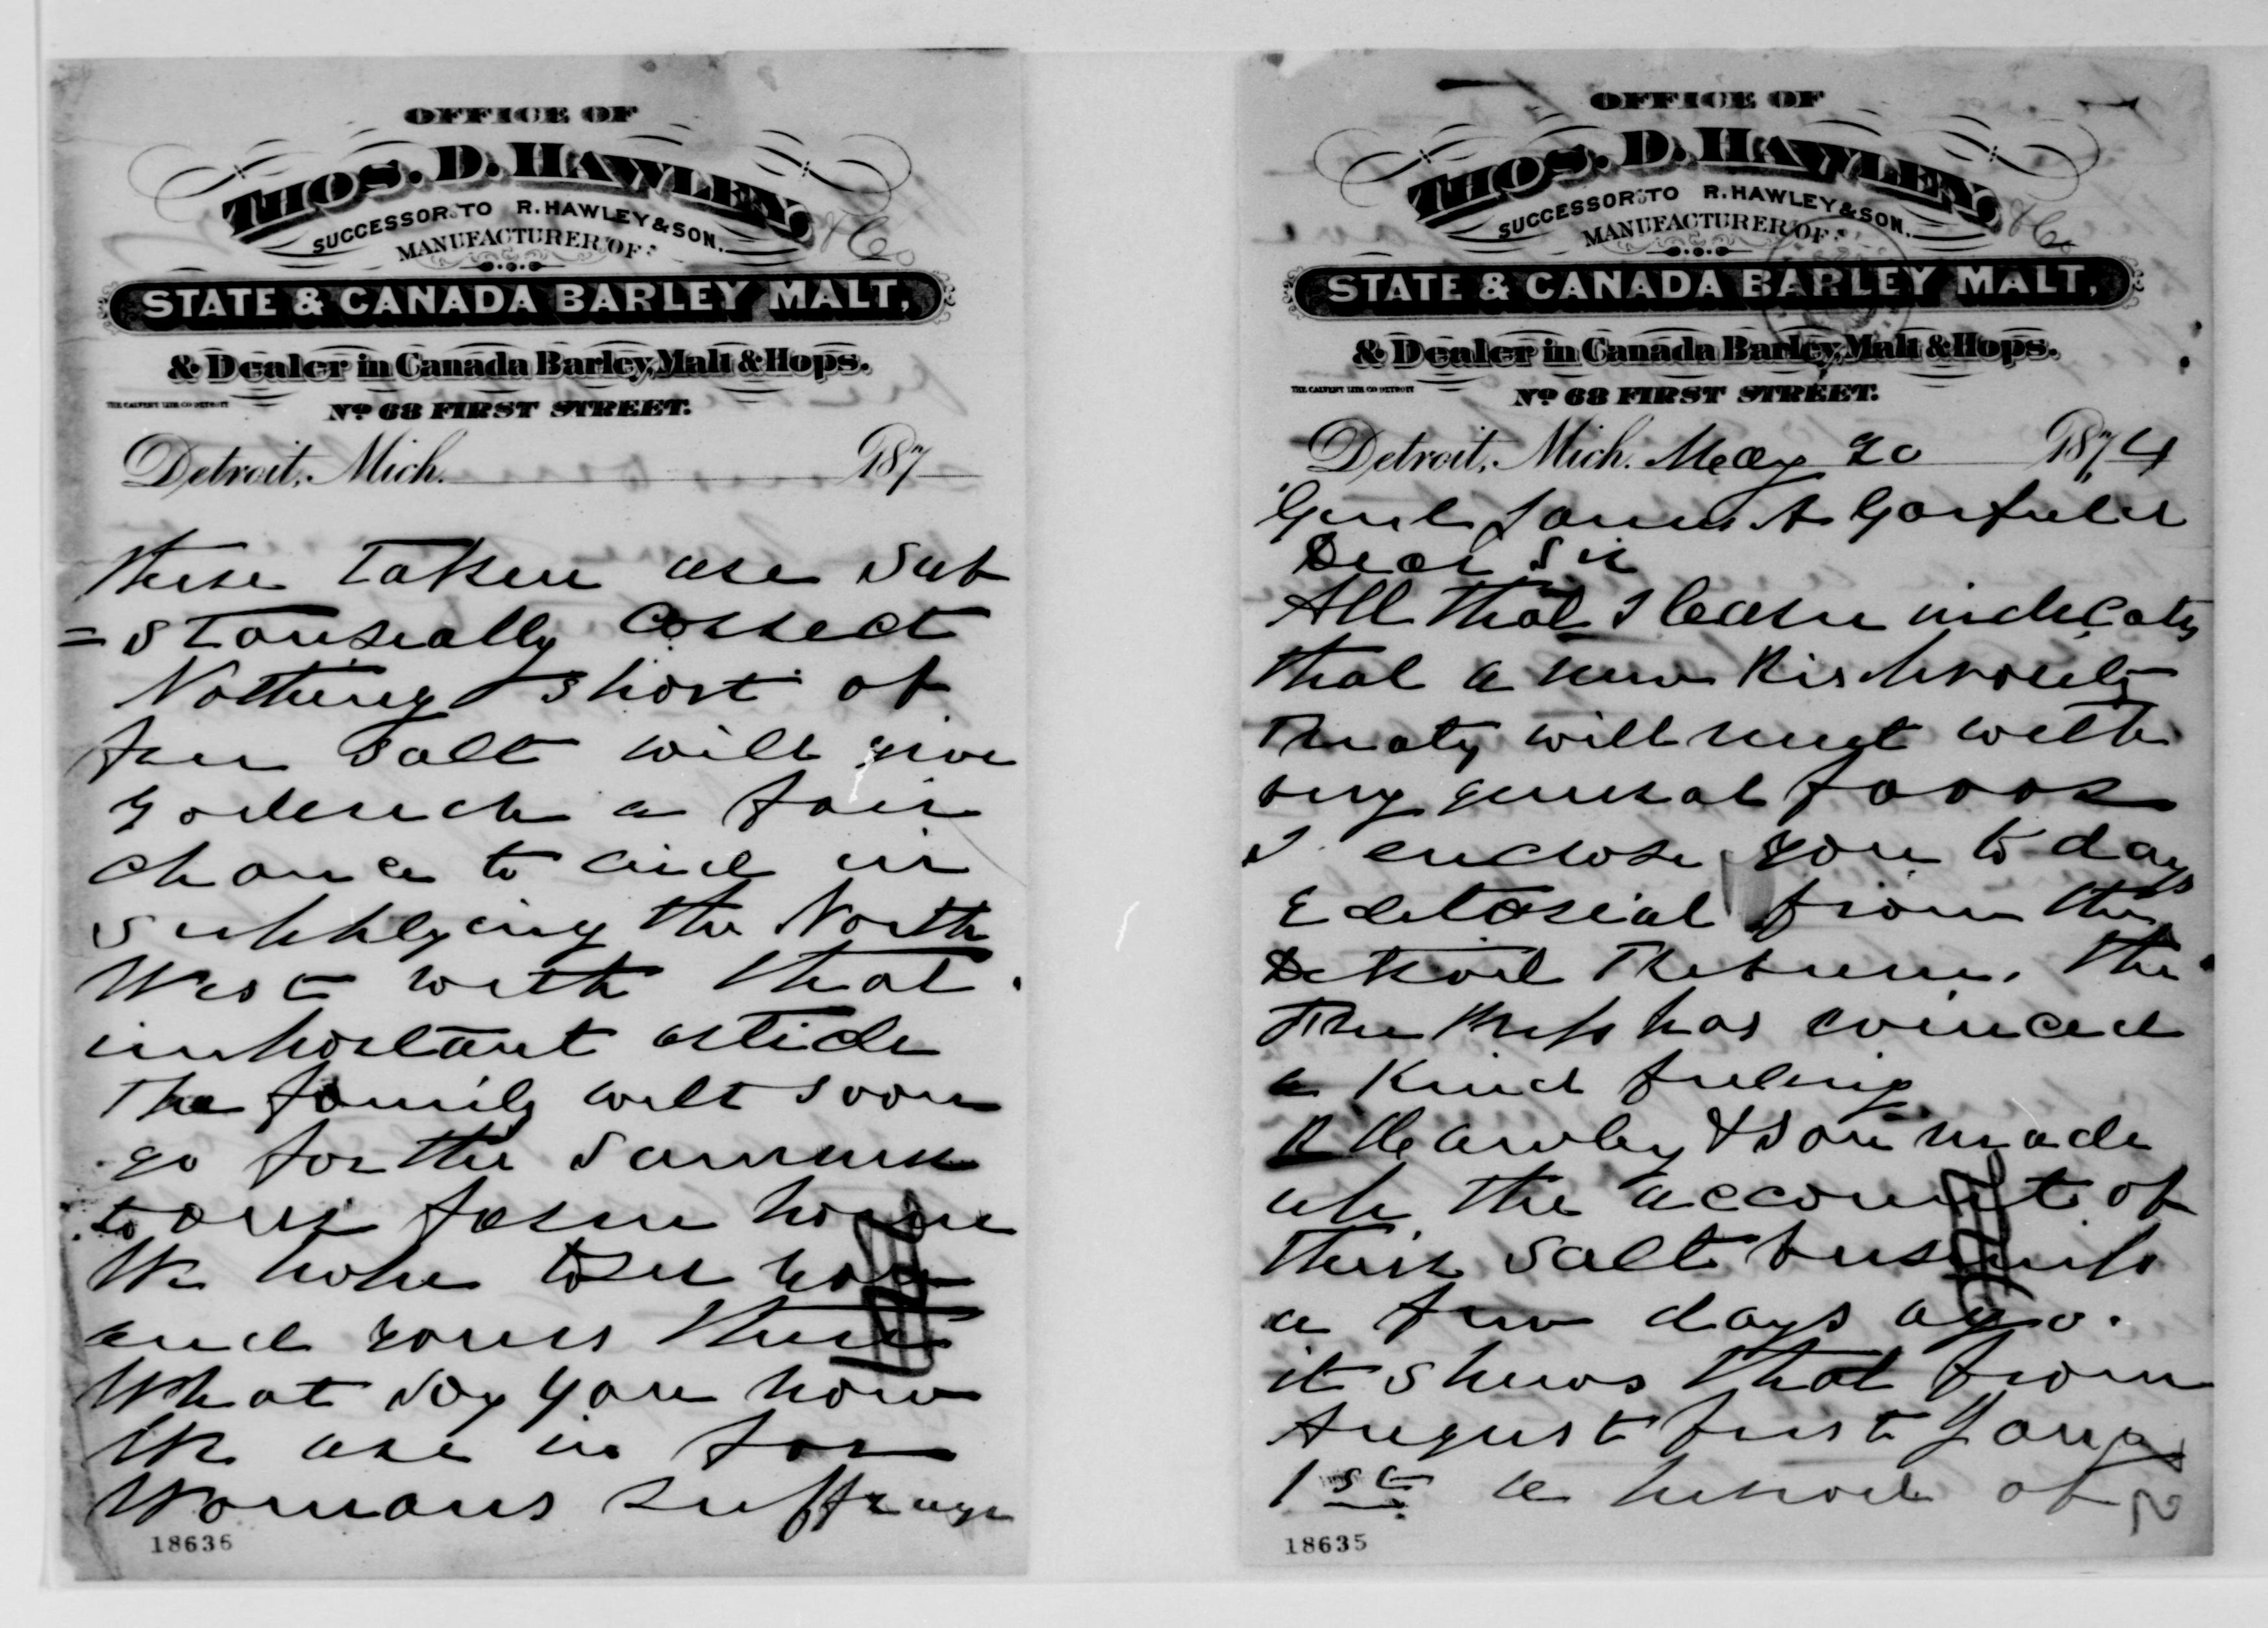 OFFICE OF
THOS. D. HAWLEY,
SUCCESSOR TO R. HAWLEY & SON.
MANUFACTURER OF
STATE & CANADA BARLEY MALT,
& Dealer in Canada Barley, Malt & Hops.
THE CALVERT LITH CO DETROIT
No 68 FIRST STREET.
Detroit, Mich. 187
these taken are sub
=stantially correct
Nothing short of
free salt will give
Goderich a fair
chance to aid in
supplying the North
West with that
important article
The family will soon
go for the summer
to our farm home
We hope to see you
and yours there
What say you now
We are in for
Womans suffrage
18636
OFFICE OF
THOS. D. HAWLEY,
SUCCESSOR TO R. HAWLEY & SON.
MANUFACTURER OF
STATE & CANADA BARLEY MALT,
& Dealer in Canada Barley, Malt & Hops.
THE CALVERT LITH CO DETROIT
No 68 FIRST STREET.
Detroit, Mich. May 20 1874
Genl James A Garfield
Dear Sir
All that I learn indicates
that a new Riciprocity
Treaty will meet with
very general favor
I enclose you to days
Editorial from the
Detroit Tribune. The
Free Press has evinced
a Kind feeling
R Hawley & Son made
up the account of
their salt business
a few days ago.
it shews that from
August first to Jany
1st a period of
18635